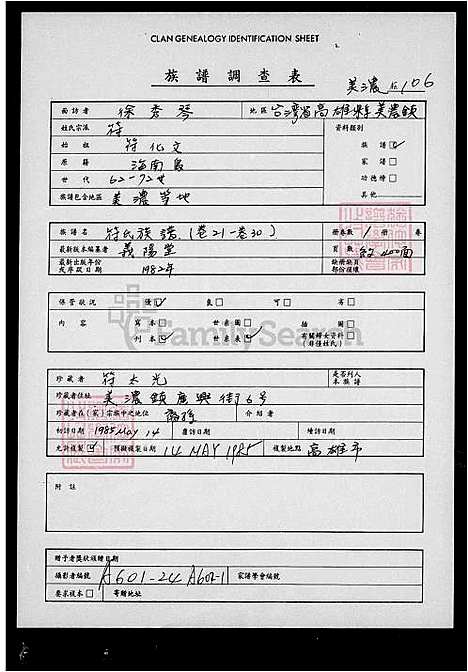 CLAN GENEALOGY IDENTIFICATION SHEET
族譜調查表
美濃 106
面訪者 徐秀琴 地區 台灣省高雄縣美濃鎮
姓氏宗派 符 資料類別
始祖 符化文 族譜 ☑
原籍 海南島 家譜 □
世代 62-72世 功德榜 □
族譜包含地區 美濃等地 其他
族譜名 符氏族譜 (卷21-卷30) 冊卷數 1 冊 卷
最新版本編纂者 義陽堂 頁數 400面
最新出版年份或序跋日期 1982年 缺冊缺頁部份複樣
保管狀況 優 ☑ 良 □ 可 □ 劣 □
內容 寫本 □ 世系圖 □ 插圖 □
刊本 ☑ 世系表 ☑ 有關婦女資料(非僅姓氏) □
FamilySearch
珍藏者 符太光 是否列入本族譜
珍藏者住址 美濃鎮廣興街76号
珍藏者在(家)宗族中之地位 裔孫 介紹者
初訪日期 1985 May 14 覆訪日期 續訪日期
允許複製 ☑ 預擬複製日期 14 MAY 1985 複製地點 高雄市
附註
贈予者獎狀頒贈日期
攝影者編號 A601-24 A602-1 家譜學會編號
要求複本 □ 寄贈地址